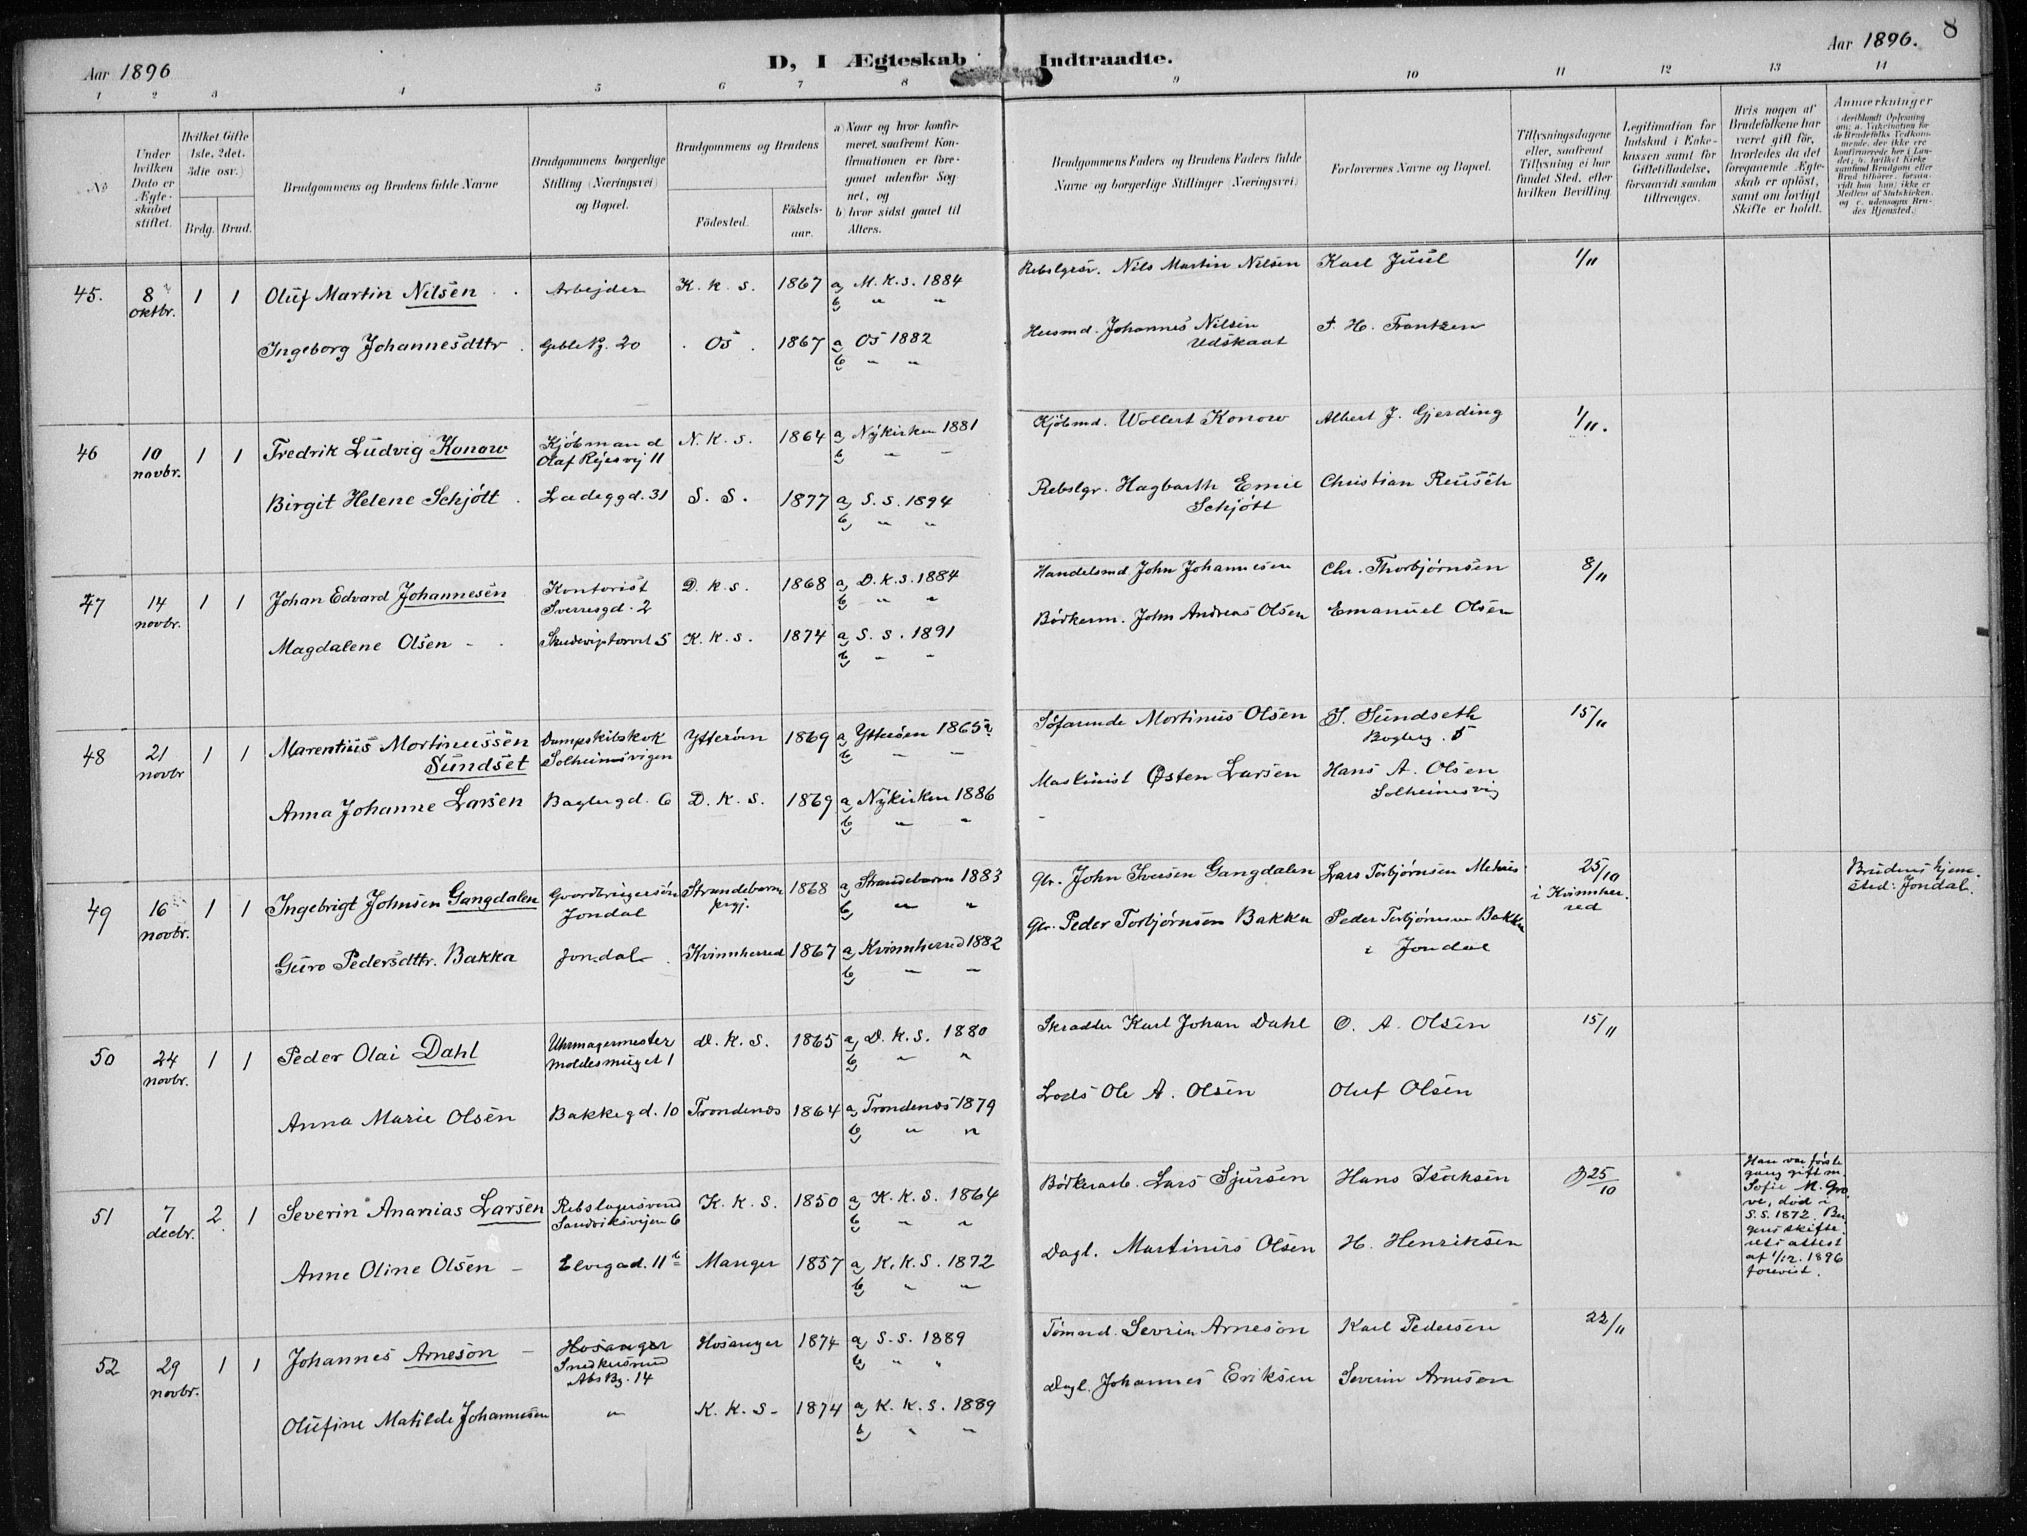 8
Aar 1896
D, I Ægteskab Indtraadte.
Aar 1896.
1 2 3 4 5 6 7 8 9 10 11 12 13 14
No
Under hvilken Dato er Ægteskabet stiftet.
Hvilket Gifte 1ste, 2det, 3die osv.)
Brdg. Brud.
Brudgommens og Brudens fulde Navne
Brudgommens borgerlige Stilling (Næringsvei) og Bopæl.
Brudgommens og Brudens
Födested. Födsels-aar.
a) Naar og hvor konfirmeret, saafremt Konfirmationen er foregaaet udenfor Sognet, og
b) hvor sidst gaaet til Alters.
Brudgommens Faders og Brudens Faders fulde Navne og borgerlige Stillinger (Næringsvei)
Forlovernes Navne og Bopæl.
Tillysningsdagene eller, saafremt Tillysning ei har fundet Sted, efter hvilken Bevilling.
Legitimation for Indskud i Enkekassen samt for Giftetilladelse, forsaavidt saadan tiltrænges.
Hvis nogen af Brudefolkene har været gift för, hvorledes da det foregaaende Ægteskab er oplöst, samt om lovligt Skifte er holdt.
Anmærkninger
(deriblandt Oplysning om: a. Vakcination for de Brudefolks Vedkommende, der ikke ere konfirmerede her i Landet; b. hvilket Kirkesamfund Brudgom eller Brud tilhörer, forsaavidt han (hun) ikke er Medlem af Statskirken, og c. udensogns Brudes Hjemsted.)
45. 8 oktbr. 1 1 Oluf Martin Nilsen Arbejder K. K. S. 1867 a) M. K. S. 1884
b) " "
Rebslgrsv. Nils Martin Nilsen Karl Juul 1/11
Ingeborg Johannesdttr Geble Pg. 20 Os 1867 a) Os 1882
b) " "
Husmd. Johannes Nilsen Udskaat J. H. Frantzen
46 10 novbr. 1 1 Fredrik Ludvig Konow Kjøbmand
Olaf Ryesvej 11 N. K. S. 1864 a) Nykirken 1881
b) " "
Kjøbmd. Wollert Konow Albert J. Gjerding 1/11.
Birgit Helene Schjött Ladeggd. 31 S. S. 1877 a) S. S. 1894
b) " "
Rebslgr. Hagbarth Emil Schjött Christian Reusch
47 14 novbr. 1 1 Johan Edvard Johannesen Kontorist
Sverresgd. 2 D. K. S. 1868 a) D. K. S. 1884
b) " "
Handelsmd John Johannesen Chr. Thorbjørnsen 8/11
Magdalene Olsen Skudevigstorvet 5 K. K. S. 1874 a) S. S. 1891
b) " "
Bødkerm. John Andreas Olsen Emanuel Olsen
48 21 novbr 1 1 Marentius Mortinussen
Sundset Dampskibskok
Solheimsvigen Ytterøen 1869 a) Ytterøen 1865
b) " "
Søfarende Mortinus Olsen J. Sundseth 15/11
Anna Johanne Larsen Baglergd. 6 D. K. S. 1869 a) Nykirken 1886
b) " "
Maskinist Østen Larsen Hans A. Olsen
Solheimsvig
49 16 novbr. 1 1 Ingebrigt Johnsen Gangdalen Gaardbrugersøn
Jondal Strandebarm
prgj. 1868 a) Strandebarm 1883
b) " "
Gbr. John Iversen Gangdalen Lars Torbjørnsen 25/10
i Kvinnherred
Brudens hjemsted: Jondal.
Guro Pedersdttr. Bakka Jondal Kvinnherred 1867 a) Kvinnherred 1882
b) " "
Gbr. Peder Torbjørnsen Bakka Peder Torbjørnsen Bakka
i Jondal
50 24 novbr. 1 1 Peder Olai Dahl Uhrmagermester
Moldesmuget 1 D. K. S. 1865 a) D. K. S. 1880
b) " "
Skradder Karl Johan Dahl O. A. Olsen 15/11
Anna Marie Olsen Bakkegd. 10 Trondenæs 1864 a) Trondenæs 1879
b) " "
Lods Ole A. Olsen Oluf Olsen
51 7 decbr. 2. 1 Severin Ananias Larsen Rebslagersvend
Sandviksvejen 6 K. K. S. 1850 a) K. K. S. 1864
b) " "
Bødkerarb. Lars Sjursen Hans Isaksen 25/10
Han var første
gang gift m.
Sofie M. Gro
ve, død i
S. S. 1872. Ber
gens skifte
rets attest
af 1/12. 1896
forevist.
Anne Oline Olsen Elvegad. 11 Manger 1857 a) K. K. S. 1872
b) " "
Dagl. Martinus Olsen H. Henriksen
52 29 novbr. 1 1 Johannes Arneson Hosanger
Snedkersvend
Abs Bg. 14 Hosanger 1874 a) S. S. 1889
b) " "
Tömmd. Sevrin Arneson Karl Pedersen 22/11
Olufine Matilde Johannesen " K. K. S. 1874 a) K. K. S. 1889
b) " "
Dagl. Johannes Eriksen Severin Arneson